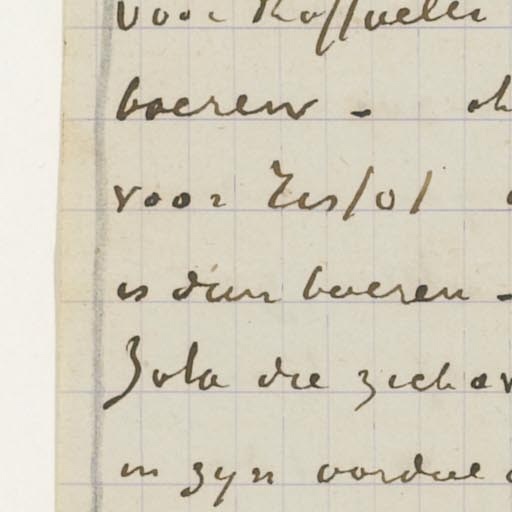 voor Raffaelli
boeren –
voor Ursfof
is dan boeren –
Zola die zich
in zyn oordeel